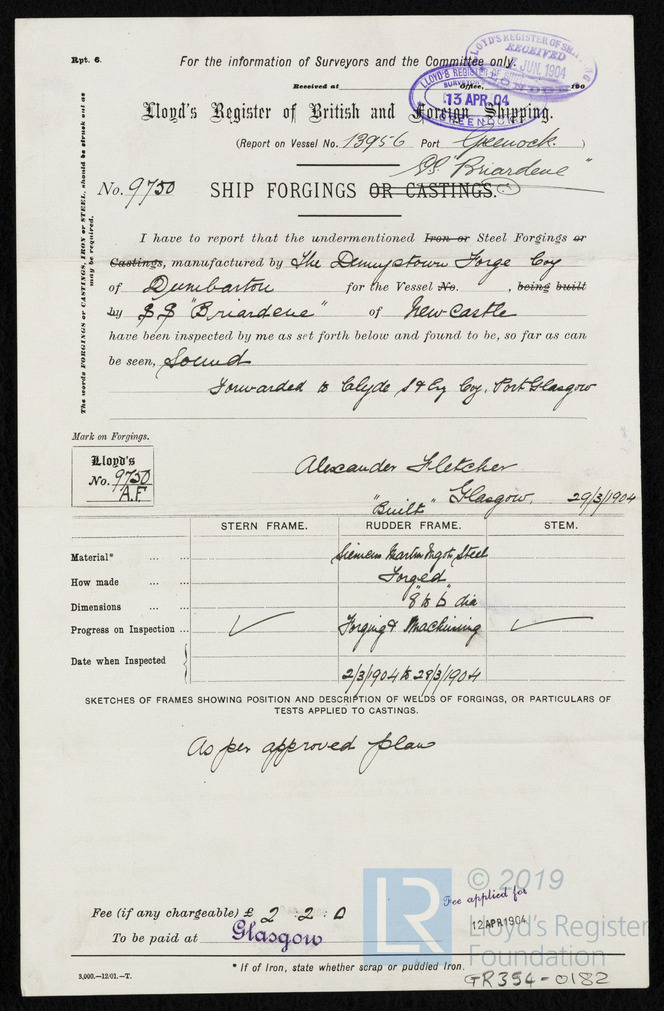 Rpt. 6.
For the information of Surveyors and the Committee only.
LLOYD'S REGISTER OF SHIPPING
RECEIVED
JUN. 1904
LONDON
Received at Office, 190
LLOYD'S REGISTER OF
SURVEYORS
13 APR. 04
GREENOCK
Lloyd's Register of British and Foreign Shipping.
(Report on Vessel No. 13956 Port Greenock. )
SS "Briardene"
No. 9750 SHIP FORGINGS OR CASTINGS.
The words FORGINGS or CASTINGS, IRON or STEEL, should be struck out as may be required.
I have to report that the undermentioned Iron or Steel Forgings or
Castings, manufactured by The Dennystown Forge Coy
of Dumbarton for the Vessel No. , being built
by SS "Briardene" of Newcastle
have been inspected by me as set forth below and found to be, so far as can
be seen, Sound
Forwarded to Clyde S & Eng Coy, Port Glasgow
Mark on Forgings.
Lloyd's
No. 9750
A.F.
Alexander Fletcher
Glasgow, 29/3/1904
"Built"
STERN FRAME. RUDDER FRAME. STEM.
Material* ... ... Siemens Martin Ingot Steel
How made ... ... Forged
Dimensions ... ... 8" to 6" dia
Progress on Inspection ... Forging & Machining
Date when Inspected 2/3/1904 to 28/3/1904
SKETCHES OF FRAMES SHOWING POSITION AND DESCRIPTION OF WELDS OF FORGINGS, OR PARTICULARS OF
TESTS APPLIED TO CASTINGS.
As per approved plan
Fee (if any chargeable) £ 2 : 2 : 0
Fee applied for
12 APR 1904
To be paid at Glasgow
* If of Iron, state whether scrap or puddled Iron.
3,000.—12/01.—T.
LR
© 2019
Lloyd's Register
Foundation
GR354-0182